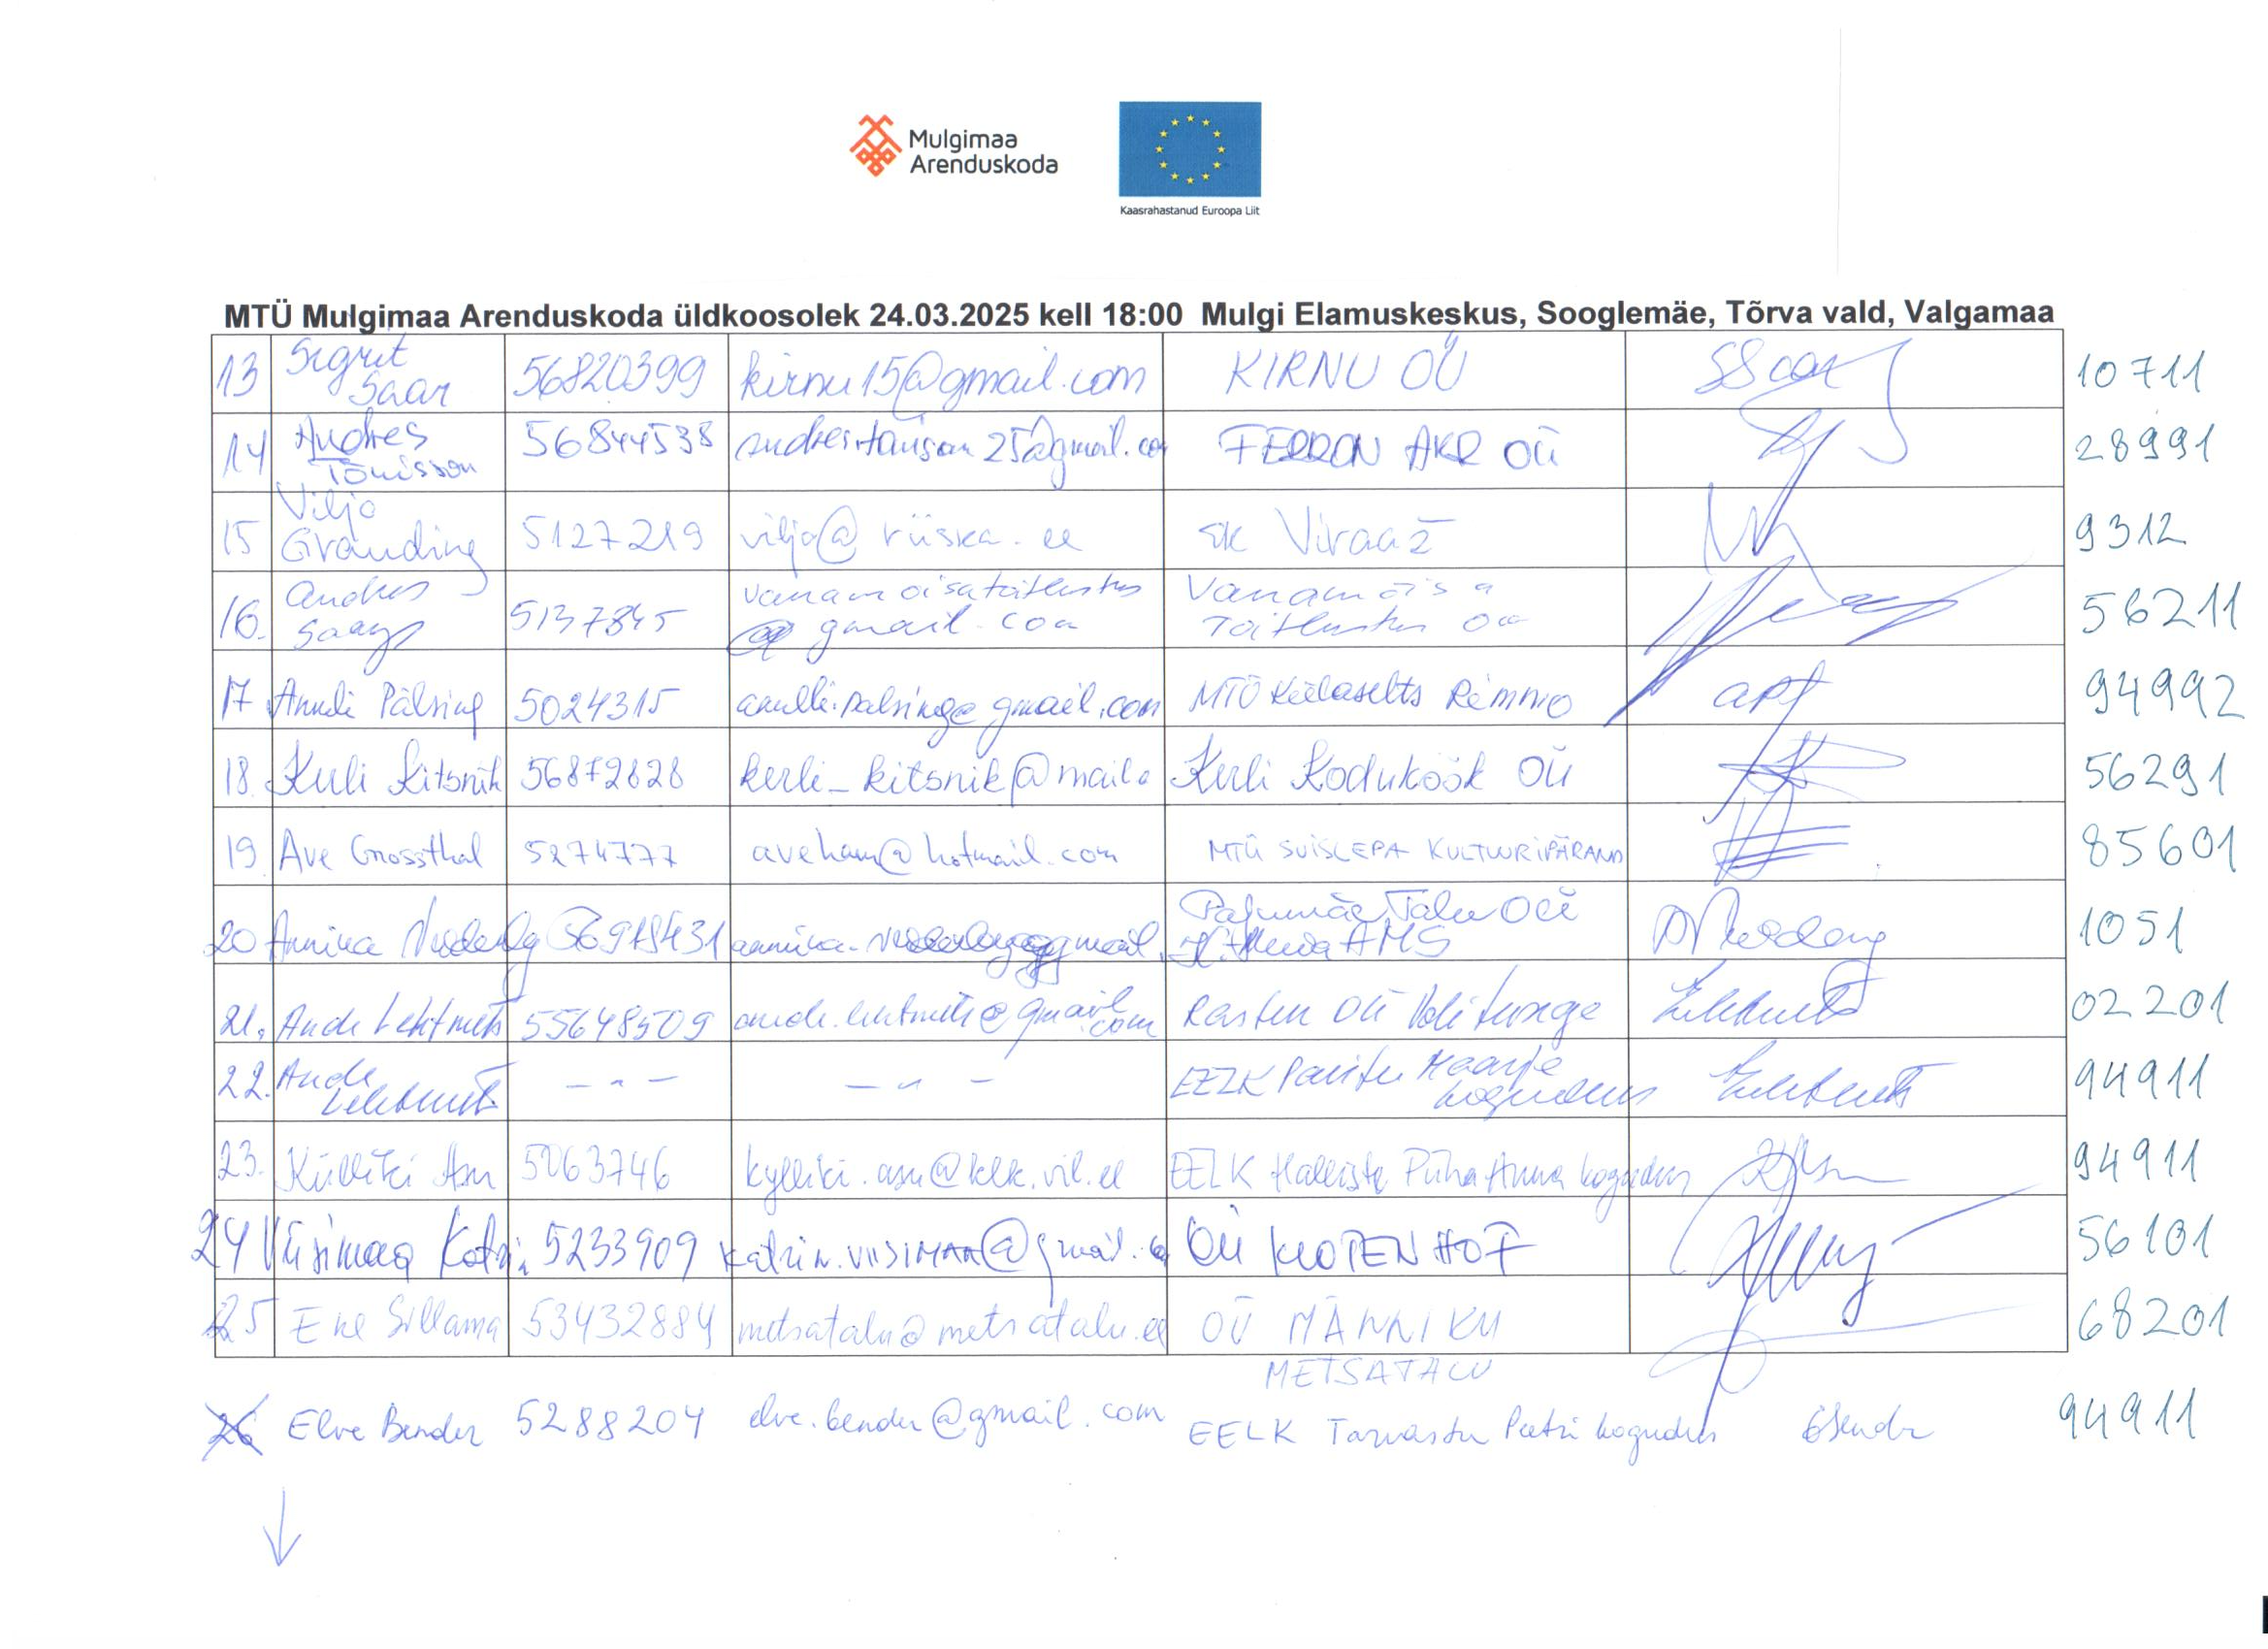 Mulgimaa
Arenduskoda
Kaasrahastanud Euroopa Liit
MTÜ Mulgimaa Arenduskoda üldkoosolek 24.03.2025 kell 18:00 Mulgi Elamuskeskus, Sooglemäe, Tõrva vald, Valgamaa
13 Sigrit Saar 56820399 kirnu15@gmail.com KIRNU OÜ SSaar 10711
14 Andres Tõnisson 56844538 FERRON AKR OÜ 28991
15 Viljo Granding 5127219 viljo@riiska.ee SK Viraaž 9312
16. Andres Saag 5137845 vanamoisatoitlustus@gmail.com Vanamõisa Toitlustus OÜ 56211
17 Anneli Pälsing 5024315 MTÜ Külaselts Rimmo 94992
18. Kerli Kitsnik 56872828 kerli_kitsnik@mail. Kerli Koduköök OÜ 56291
19. Ave Grossthal 5274777 aveham@hotmail.com MTÜ SUISLEPA KULTUURIPÄRAND 85601
20 Annika 56978431 Pajumäe Talu OÜ 1051
21. Ande Lehtmets 55648509 ande.lehtmets@gmail.com OÜ 02201
22. Ande Lehtmets – " – – " – EELK Paistu Maarja kogudus 94911
23. Külliki Asu 5063746 kylliki.asu@klk.vil.ee EELK Halliste Püha Anna kogudus 94911
24 Viisimaa Katri 5233909 katrin.VIISIMAA@gmail.co OÜ KLOPENHOF 56101
25 Ene Sillama 53432884 metsatalu@metsatalu.ee OÜ MÄNNIKU METSATALU 68201
26 Elve Bender 5288204 elve.bender@gmail.com EELK Tarvastu Peetri kogudus EBender 94911